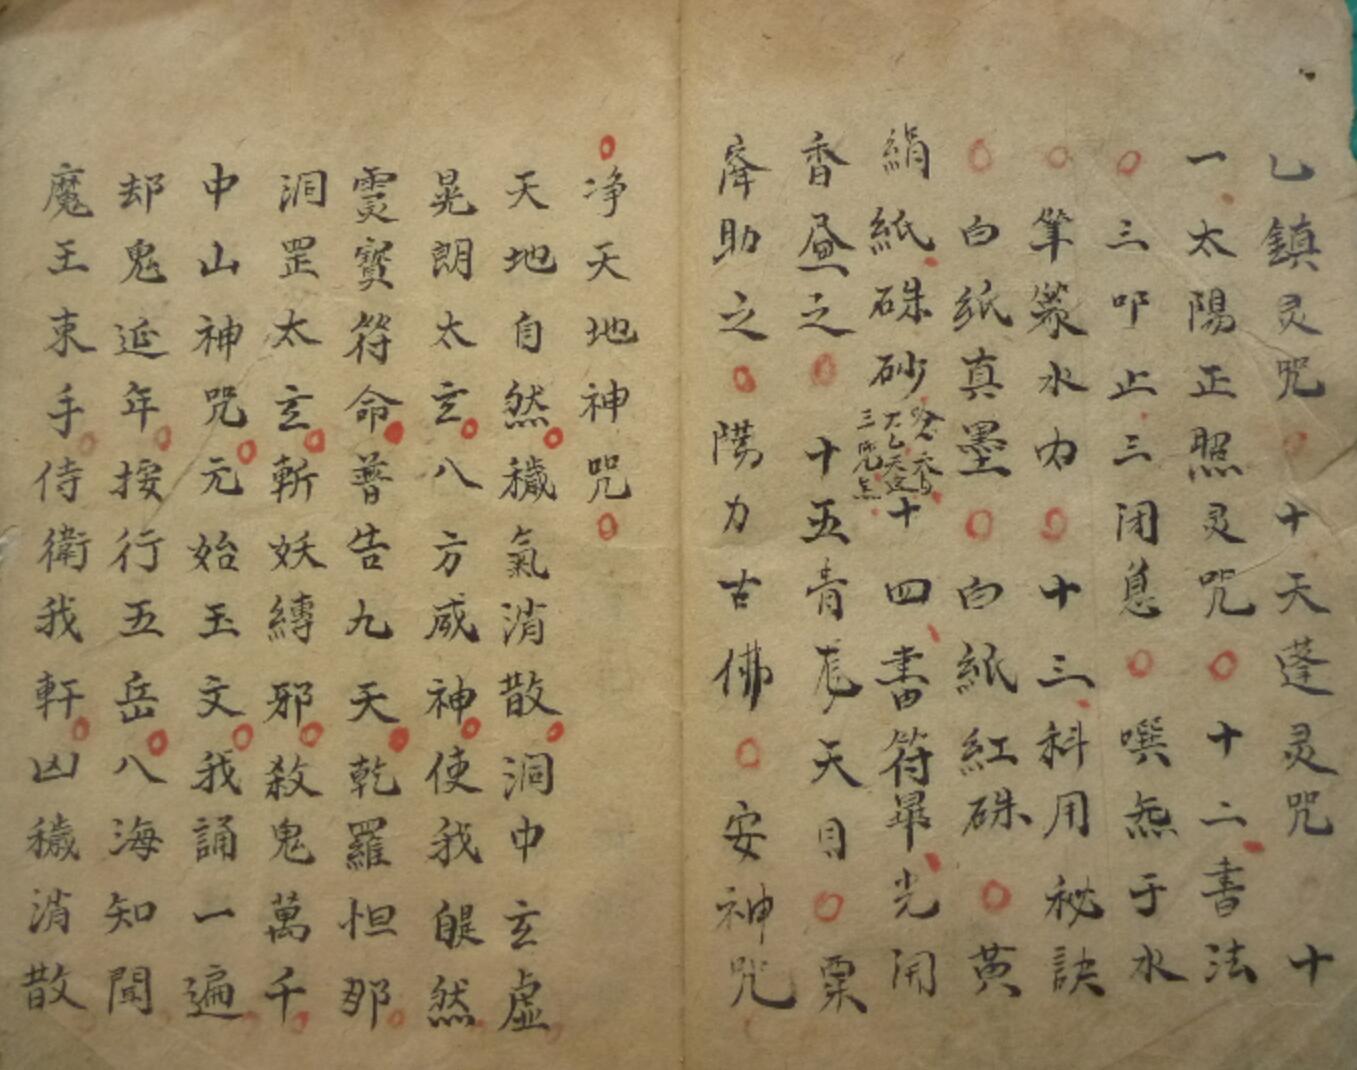 乚鎮灵咒十天蓬灵咒十
一太陽正照灵咒十二書法
三叩止三闭息噀炁于水
笔蘸水内十三科用秘訣
白纸真墨白紙紅硃黄
絹紙硃砂十四書符畢光開
三咒点
香疊之十五青龙天目粟
降助之陽力古佛安神咒
净天地神咒
天地自然穢氣消散洞中玄虚
晃朗太玄八方威神使我自然
靈寳符命普告九天乾羅怛那
洞罡太玄斬妖縳邪殺鬼萬千
中山神咒元始玉文我誦一遍
却鬼延年按行五岳八海知聞
魔王束手侍衛我軒凶穢消散